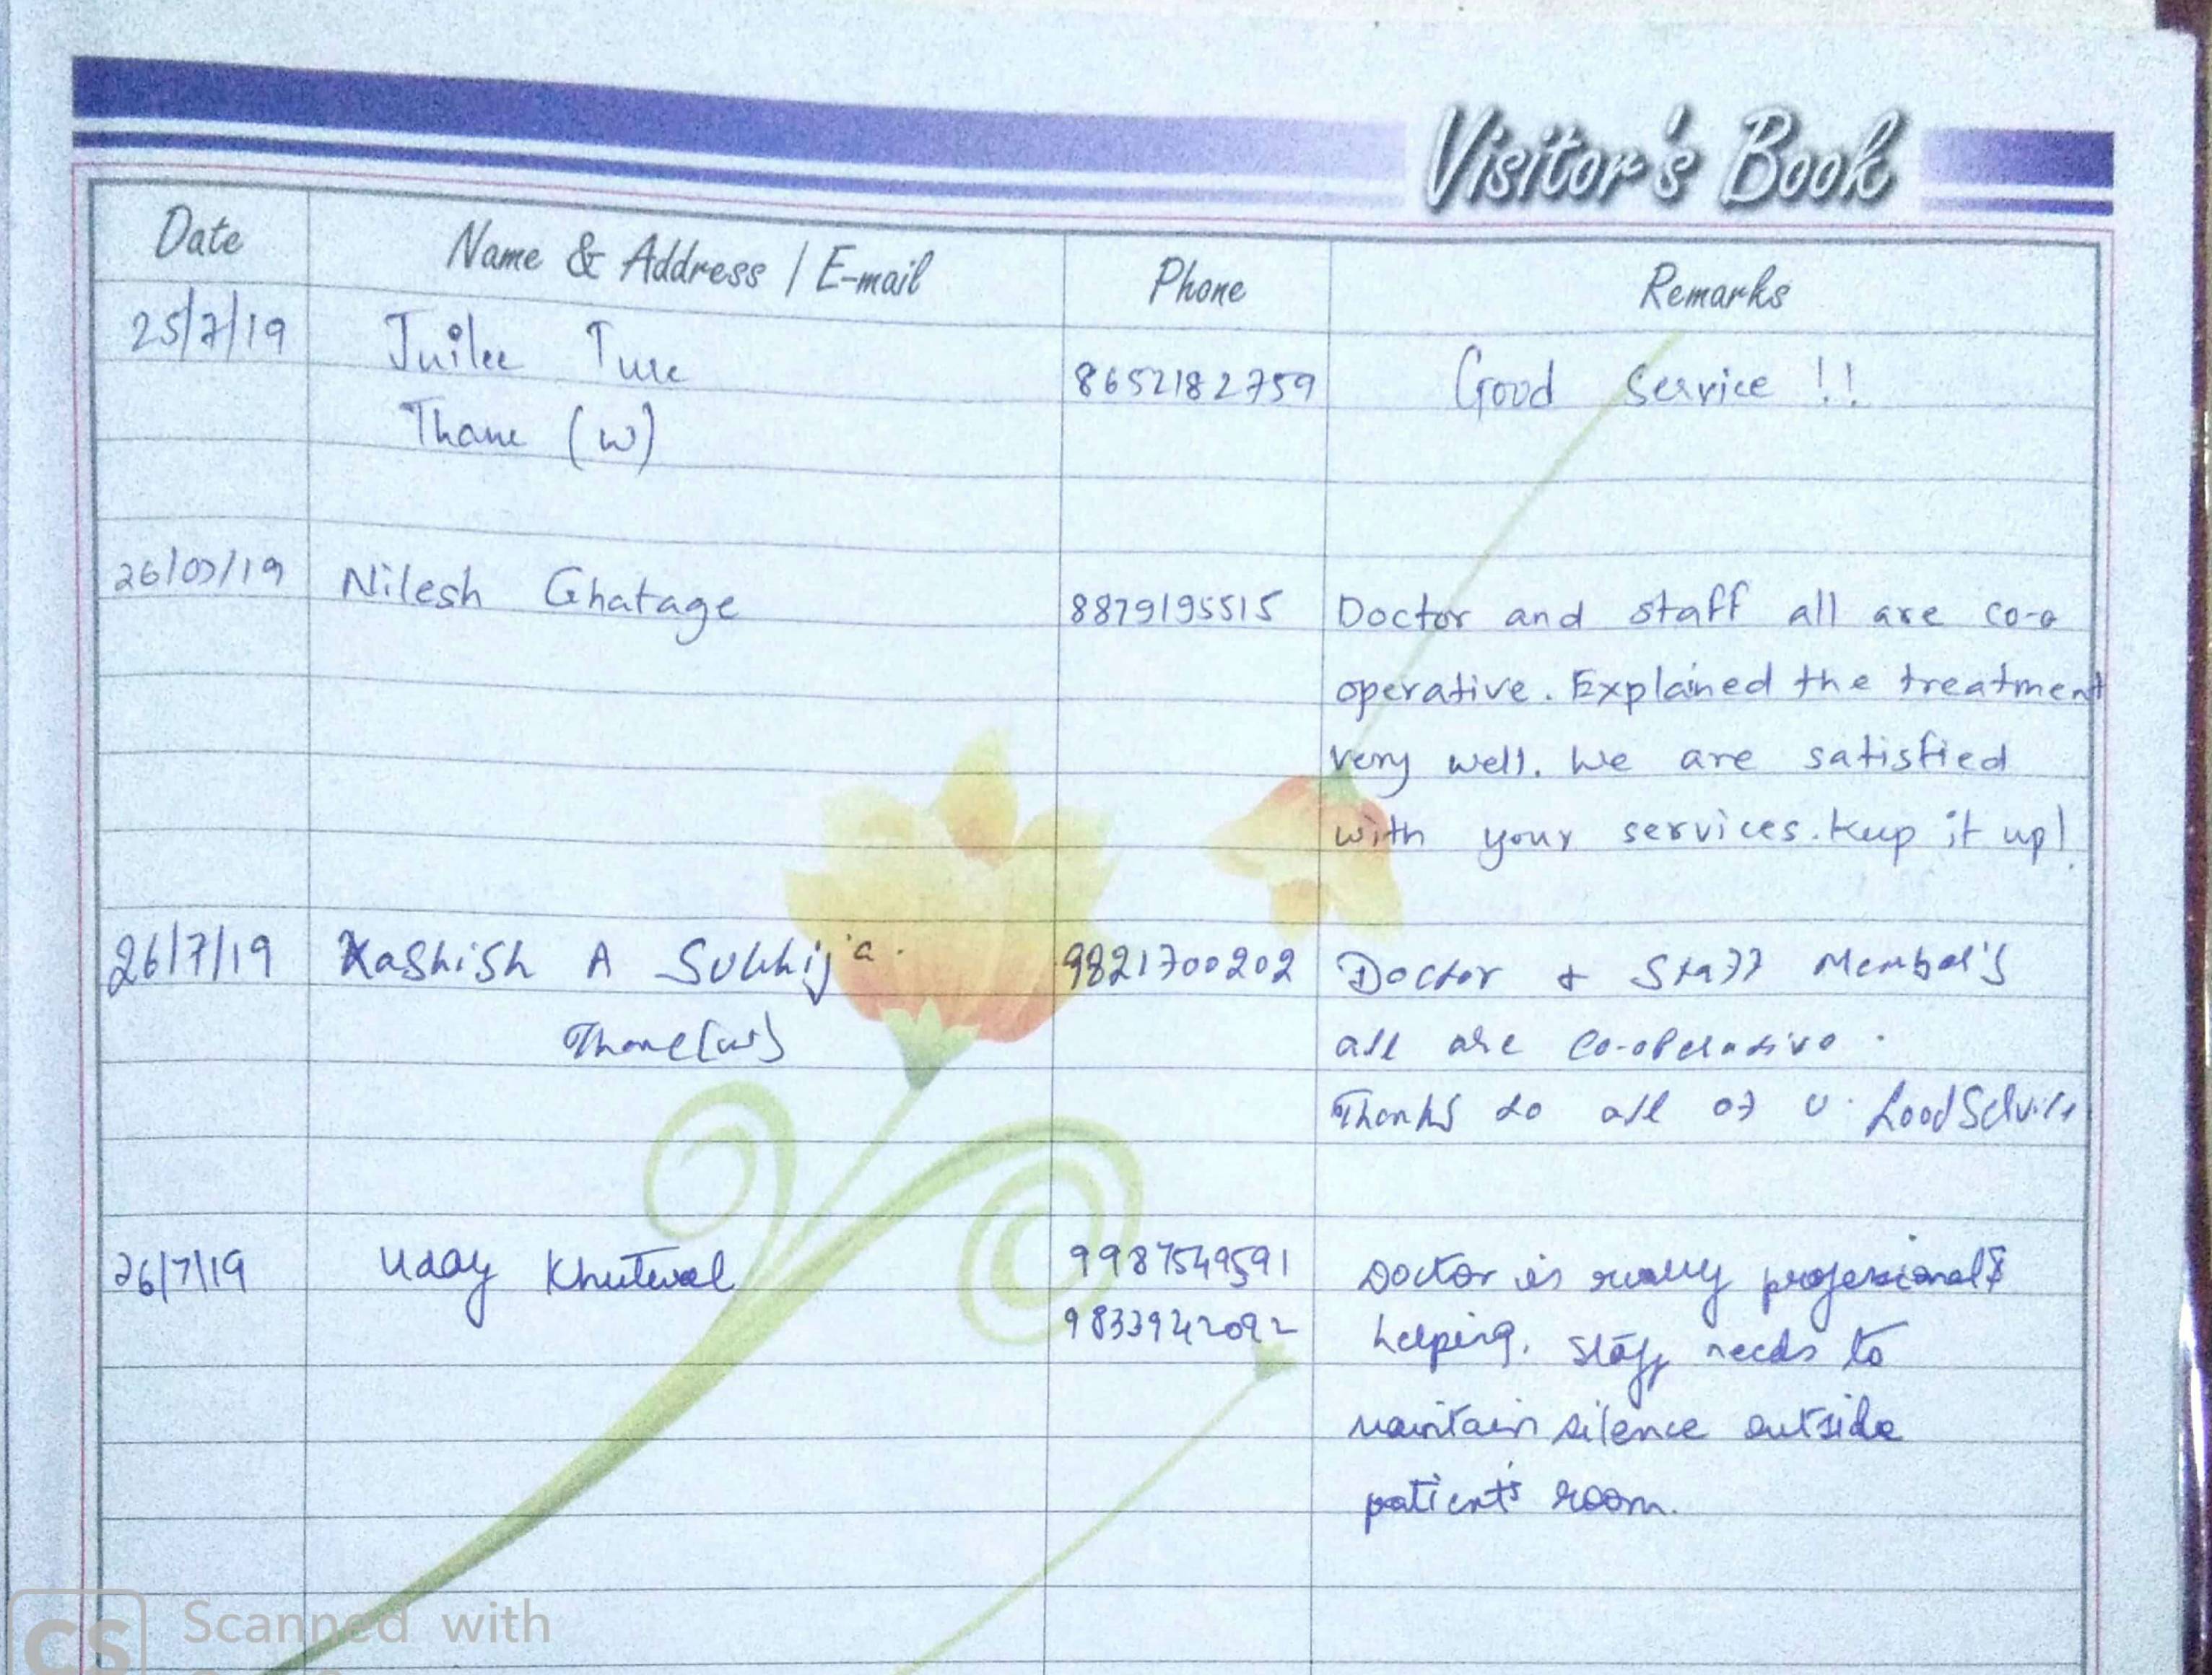 Visitor's Book
Date Name & Address / E-mail Phone Remarks
25/7/19 Juilee Ture 8652182759 Good Service !!
Thane (W)
26/07/19 Nilesh Ghatage 8879195515 Doctor and staff all are co-o
operative. Explained the treatment
very well. We are satisfied
with your services. Keep it up!
26/7/19 Kashish A Sukhija. 9821700202 Doctor & Staff Member's
Thane (w) all are co-operative.
Thanks to all of U. Good Service
26/7/19 Uday Khutwal 9987549591 Doctor is really professional &
9833942092 helping. Staff needs to
maintain silence outside
patient's room.
CS Scanned with